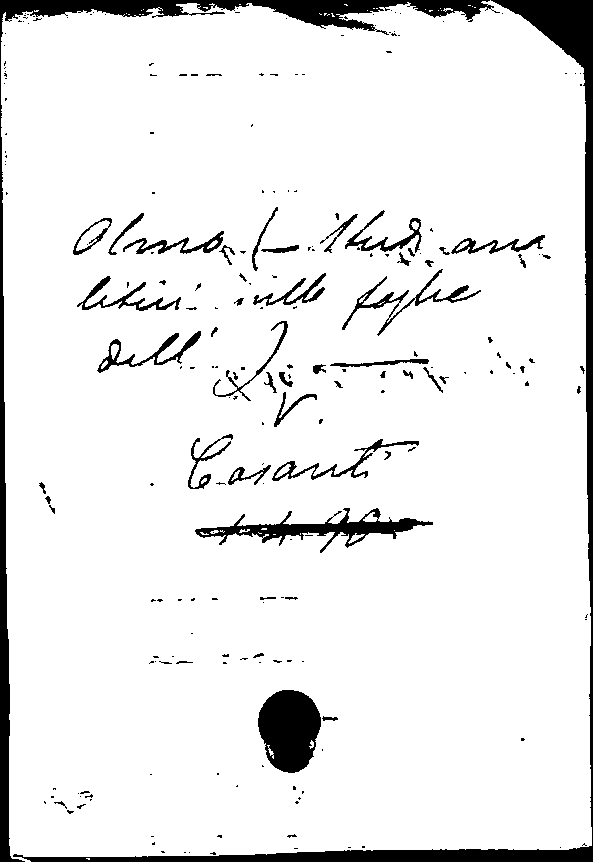 Olmo (- Studi ana
litici sulle foglie
dell' ) —
V.
Casanti